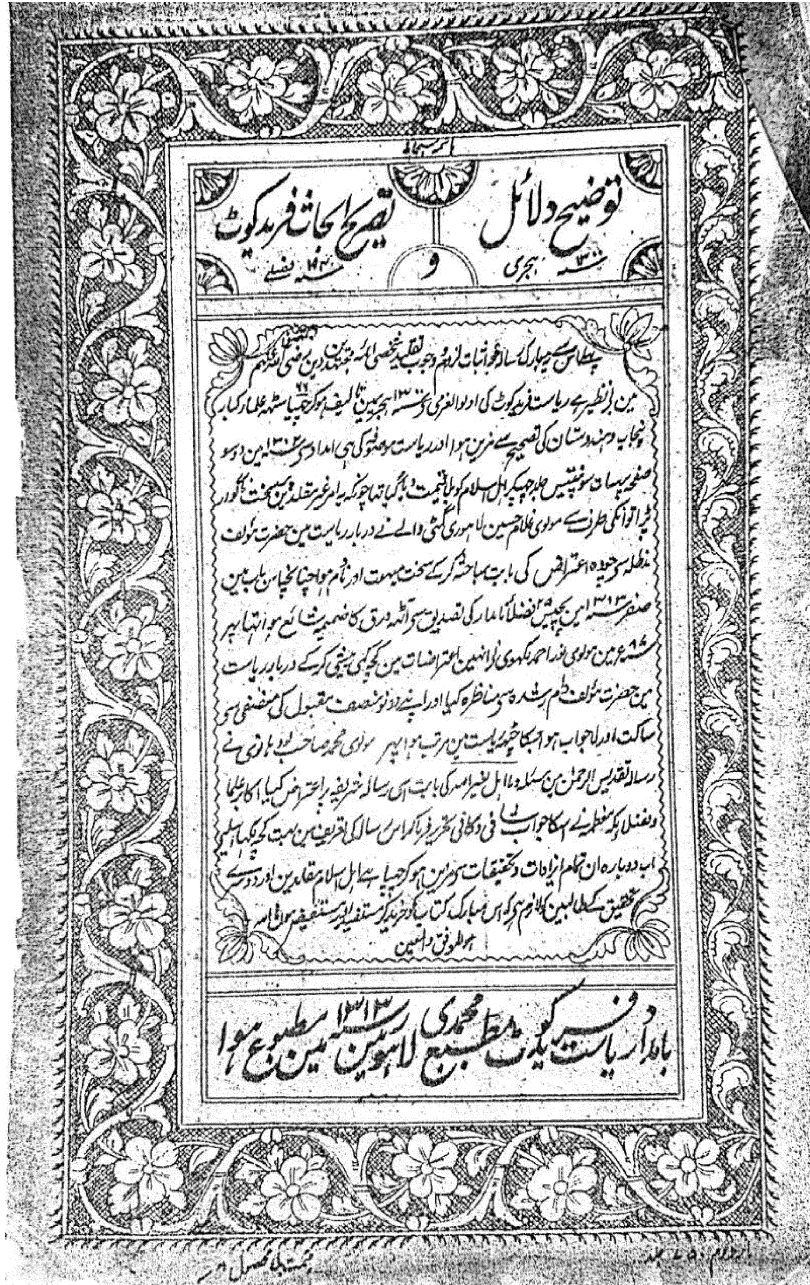 توضیح دلائل
۱۳۰۰ سنہ ہجری
و
تصریح ابحاث فرید کوٹ
سنہ فصلی
پہلے اس سے یہ مبارک رسالہ جو اثبات لزوم وجوب تقلید شخصی ائمہ مجتہدین دین رضی اللہ عنہم
مین بے نظیر ہے ریاست فرید کوٹ کی اولوالعزمی سے سنہ ۱۳۰۰ ہجری مین تالیف ہو کر چھیاسٹھ علماء کبار
پنجاب و ہندوستان کی تصحیح سے مزین ہوا اور ریاست موصوفہ کی ہی امداد سے سنہ ۱۳۰۲ مین دوسو
صفحہ پر سات سو جلد چھپکر اہل اسلام کو بلا قیمت دیا گیا تھا چونکہ یہ امر غیر مقلدین کو سخت ناگوار
پڑا تو انکی طرف سے مولوی غلام حسین لاہوری گٹی والے نے دربار ریاست مین حضرت مؤلف
مدظلہ سے چودہ اعتراض کی بابت مباحثہ کر کے سخت مبہوت اور نادم ہوا چنانچہ اس باب مین
صفر سنہ ۱۳۱۳ مین پچیس فضلاء نامدار کی تصدیق سے آٹھ ورق کا ضمیمہ شائع ہوا تھا پھر
سنہ ۹۷ء مین مولوی نور احمد لکھوی نے انہین اعتراضات مین کچھ کمی بیشی کر کے دربار ریاست
مین حضرت مؤلف دام رشدہ سے مناظرہ کیا اور اپنے دونو منصف مقبول کی منصفی سے
ساکت اور لاجواب ہوا جسکا ریاست مین مرتب ہوا پھر مولوی محمد صاحب لودہانوی نے
رسالہ تقدیس الرحمن مین مسئلہ وما اہل بہ لغیر اللہ کی بابت اس رسالہ شریفہ پر اعتراض کیا اکابر علما
و فضلا مکہ معظمہ نے اسکا جواب شافی و کافی تحریر فرما کر اس رسالہ کی تعریف مین بہت کچھ لکھا اسلیے
اب دوبارہ ان تمام ایزادات و تحقیقات سے مزین ہو کر چھپا ہے اہل اسلام مقلدین اور دوسرے
تحقیق کے طالبین کو لازم ہے کہ اس مبارک کتاب کو خرید کر مستفید اور مستفیض ہون واللہ
ہو الموفق والمعین
بامداد ریاست فرید کوٹ مطبع محمدی لاہور مین سنہ ۱۳۱۳ مین مطبوع ہوا